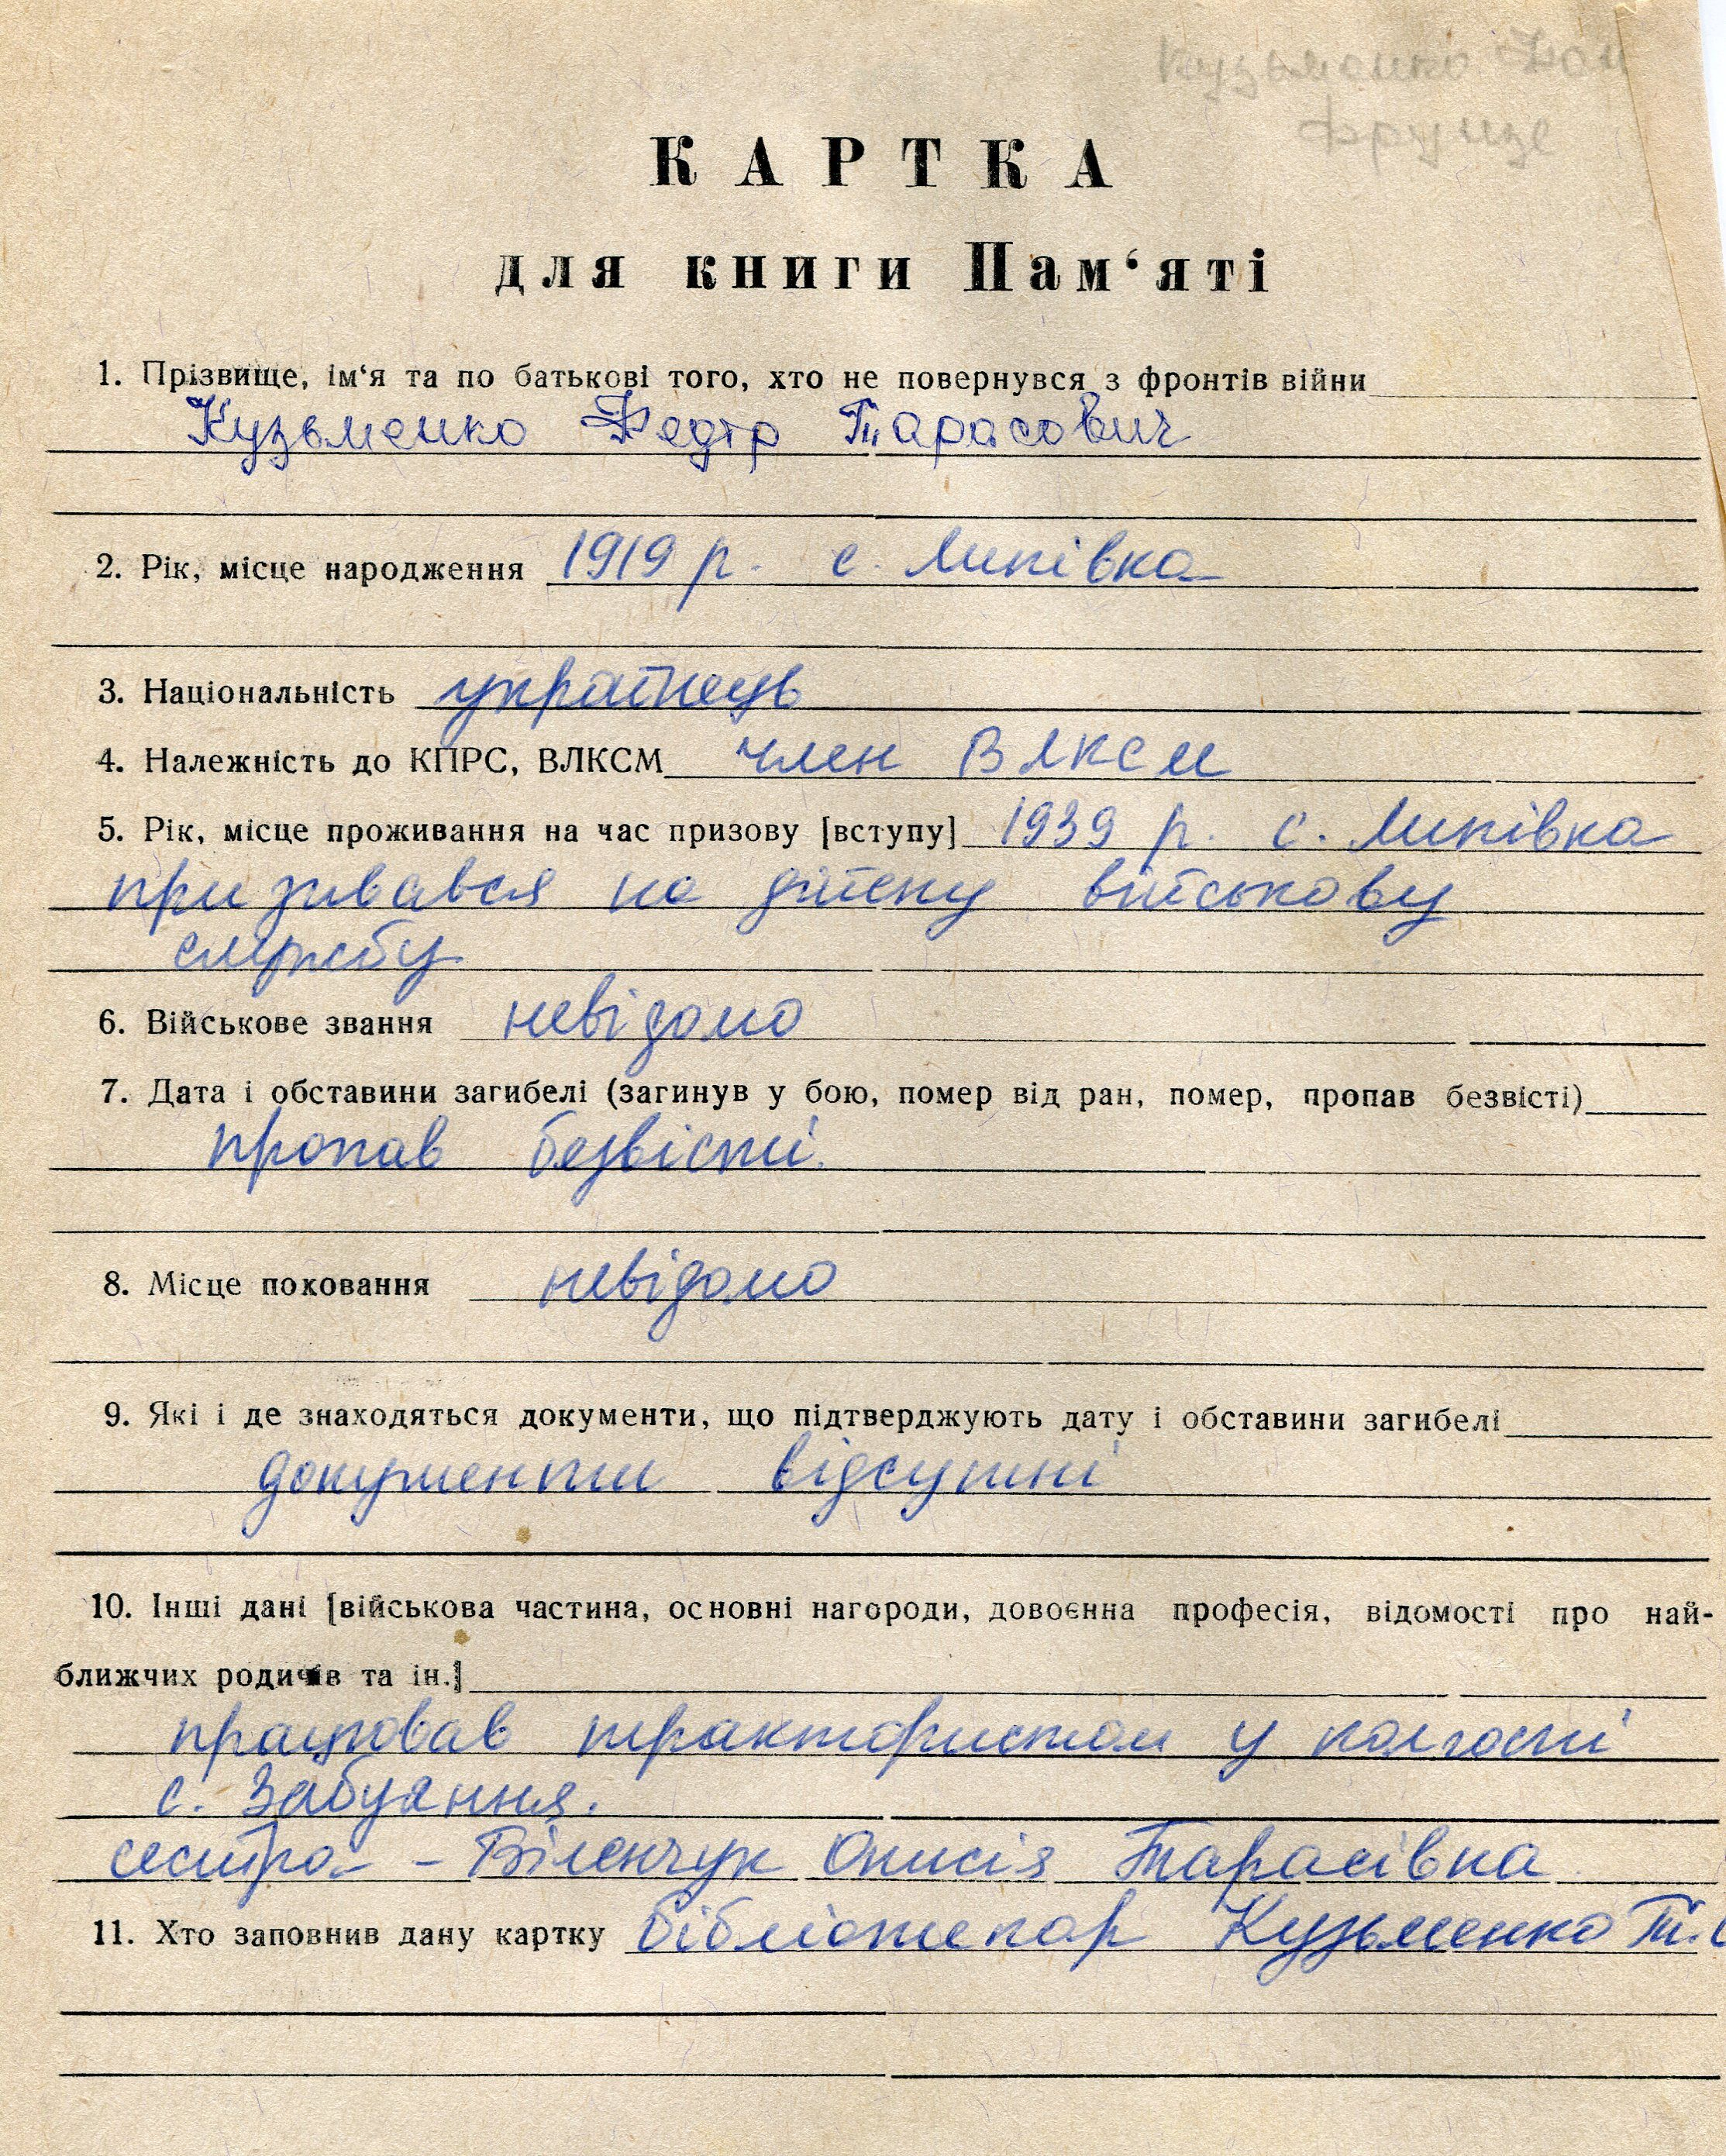 Кузьменко
Фрунзе
КАРТКА
для книги Пам‘яті
1. Прізвище, ім‘я та по батькові того, хто не повернувся з фронтів війни
Кузьменко Федір Тарасович
2. Рік, місце народження 1919 р. с. Липівка
3. Національність українець
4. Належність до КПРС, ВЛКСМ член ВЛКСМ
5. Рік, місце проживання на час призову [вступу] 1939 р. с. Липівка
призивався на дійсну військову
службу
6. Військове звання невідомо
7. Дата і обставини загибелі (загинув у бою, помер від ран, помер, пропав безвісті)
пропав безвісті.
8. Місце поховання невідомо
9. Які і де знаходяться документи, що підтверджують дату і обставини загибелі
документи відсутні
10. Інші дані [військова частина, основні нагороди, довоєнна професія, відомості про най-
ближчих родичів та ін.]
працював трактористом у колгоспі
с. Забуяння.
сестра - Віленчук Онисія Тарасівна
11. Хто заповнив дану картку бібліотекар Кузьменко Т.